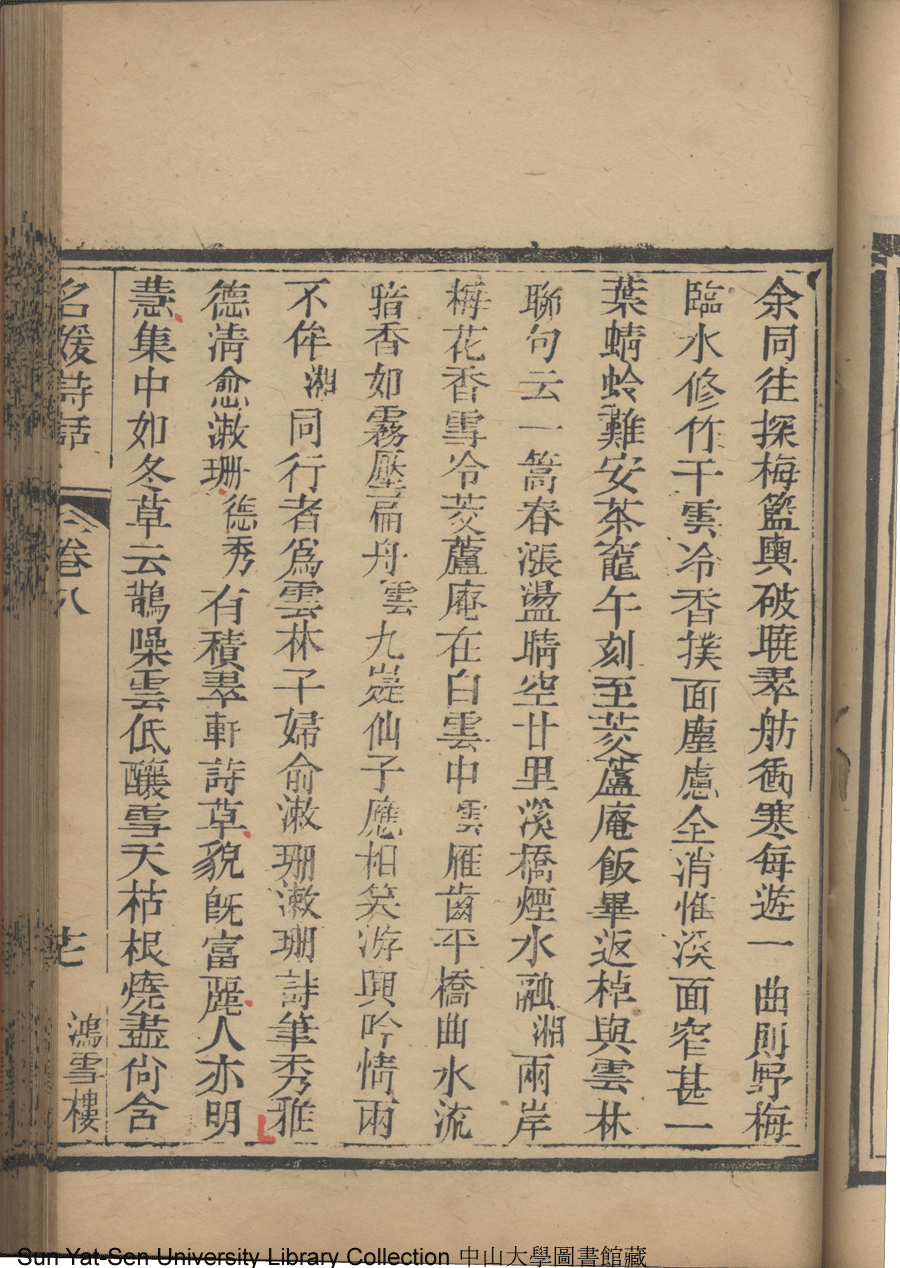 余同往探梅籃輿破曉翠舫衝寒每遊一曲則野梅
臨水修竹干雲冷香撲面塵慮全消惟溪面窄甚一
葉蜻蛉難安茶竈午刻至茭蘆庵飯畢返棹與雲林
聯句云一篙春漲盪晴空廿里溪橋煙水融湘兩岸
梅花香雪冷茭蘆庵在白雲中雲雁齒平橋曲水流
暗香如霧壓扁舟雲九嶷仙子應相笑游興吟情兩
不侔湘同行者爲雲林子婦俞漱珊漱珊詩筆秀雅
德淸愈漱珊德秀有積翠軒詩草貌旣富麗人亦明
慧集中如冬草云鵲噪雲低釀雪天枯根燒盡尙含
名媛詩話 卷八 鴻雪樓
Sun Yat-Sen University Library Collection 中山大學圖書館藏